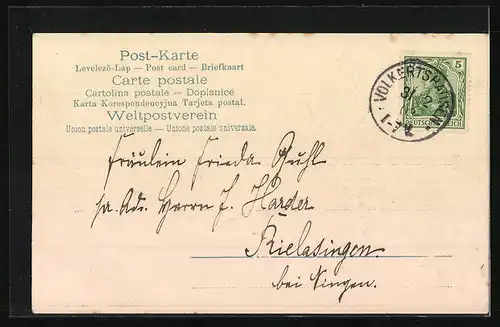 Post-Karte
Levelező-Lap — Post card — Briefkaart
Carte postale
Cartolina postale — Dopisnice
Karta Korespondencyjna Tarjeta postal.
Weltpostverein
Union postale universelle — Unione postale universale.
5
DEUTSCHES REICH
VOLKERTSHAUSEN
31 12
Fräulein Frieda Guhl
pr. Ads. Herrn J. Harder
Rielasingen
bei Singen.